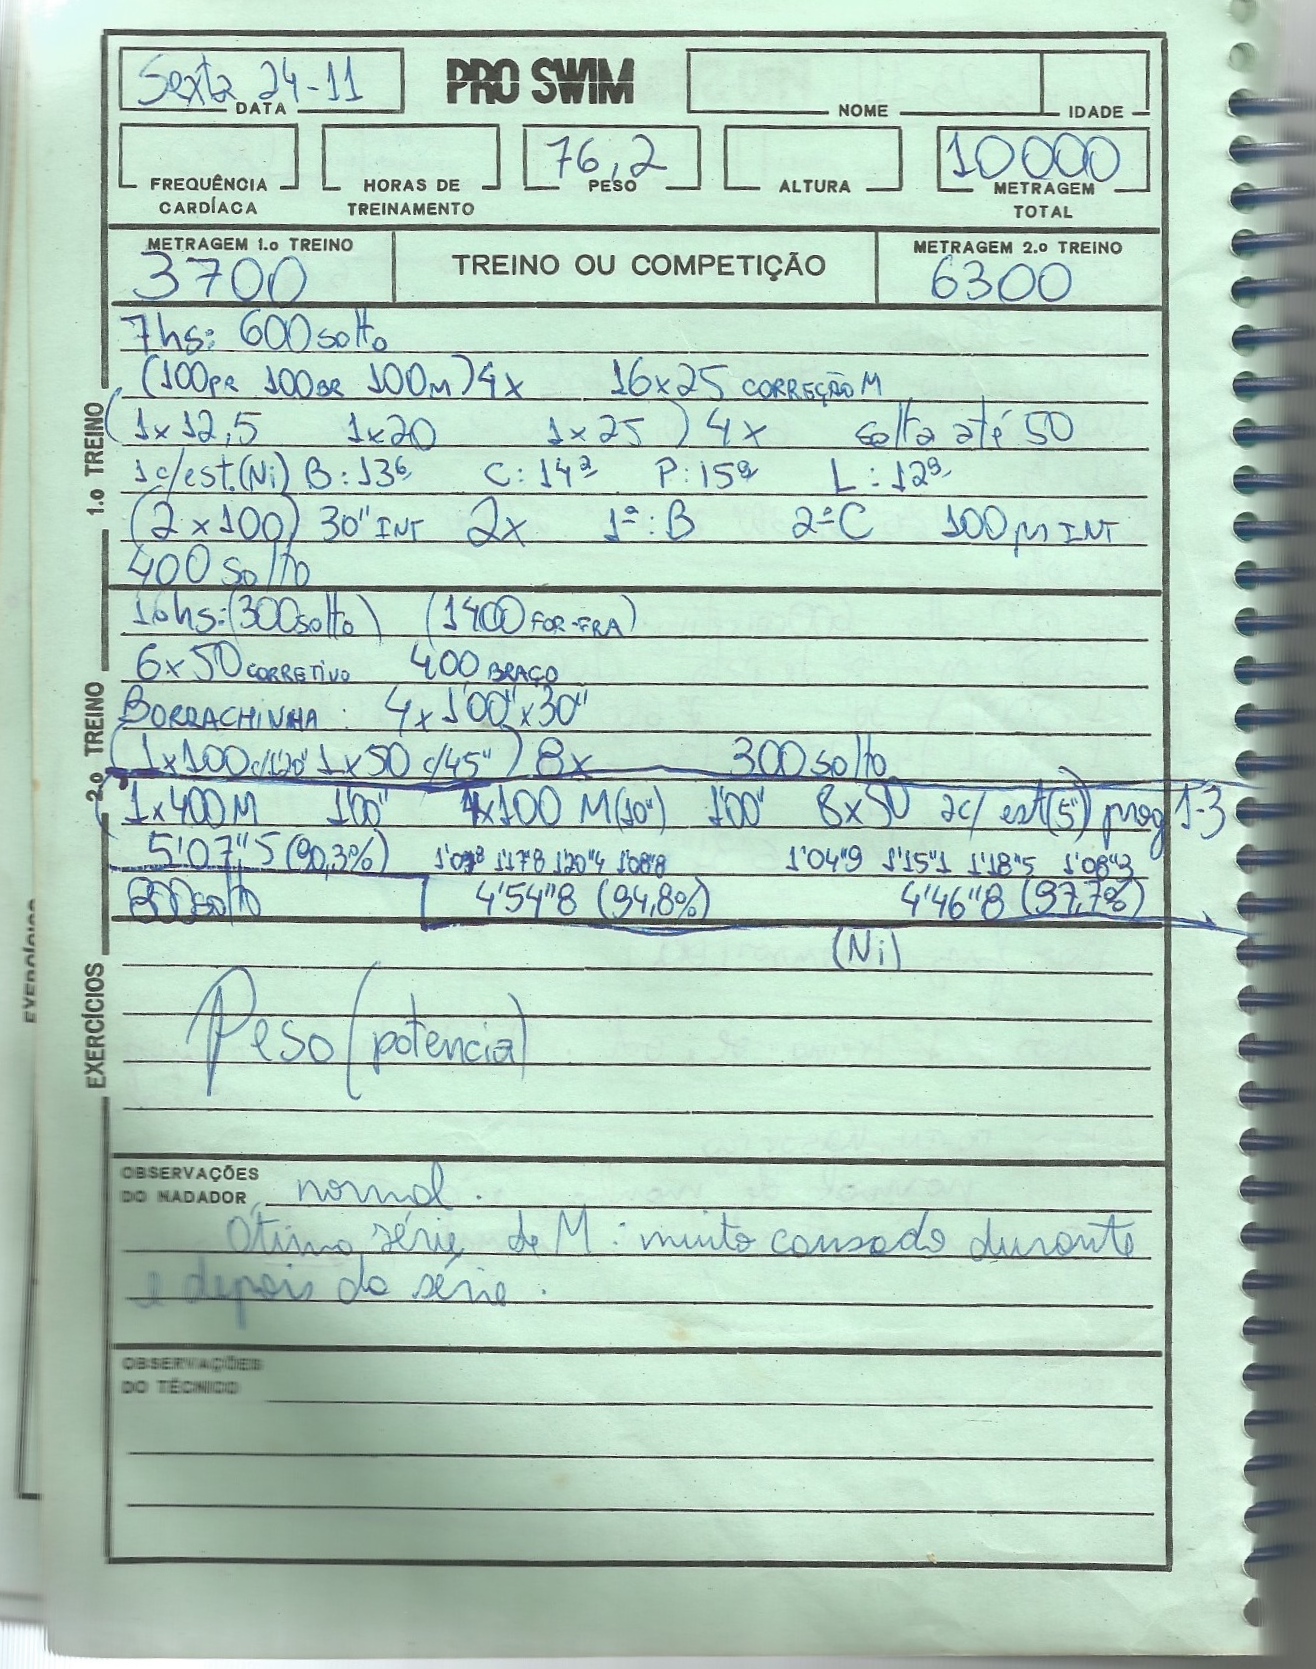 Sexta 24-11
DATA
PRO SWIM
NOME
IDADE
FREQUÊNCIA
CARDÍACA
HORAS DE
TREINAMENTO
76,2
PESO
ALTURA
10000
METRAGEM
TOTAL
METRAGEM 1.o TREINO
3700
TREINO OU COMPETIÇÃO
METRAGEM 2.o TREINO
6300
1.o TREINO
7hs: 600 solto
(100PR 100BR 100M) 4x 16x25 CORREÇÃO M
(1x12,5 1x20 1x25) 4x solta até 50
1c/est.(Ni) B:13ª C:14ª P:15ª L:12ª
(2x100) 30" INT 2x 1ª:B 2ªC 100m INT
400 solto
2.o TREINO
16hs:(300 solto) (1400 FOR-FRA)
6x50 CORRETIVO 400 BRAÇO
BORRACHINHA: 4x1'00"x30"
(1x100 c/1'20" 1x50 c/45") 8x 300 solto
1x400M 1'00" 4x100 M(10") 1'00" 8x50 2c/ est(5") prog 1-3
5'07"5 (90,3%) 1'17"8 1'20"4 1'08"8 1'04"9 1'15"1 1'18"5 1'08"3
800 solto 4'54"8 (94,8%) 4'46"8 (97,7%)
(Ni)
EXERCÍCIOS
Peso (potencia)
OBSERVAÇÕES
DO NADADOR normal.
Ótima série de M: muito cansado durante
e depois da série.
OBSERVAÇÕES
DO TÉCNICO
EXERCÍCIOS